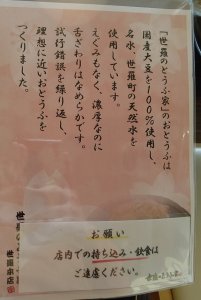 「世羅のとうふ家」のおとうふは
国産大豆を100%使用し、
名水、世羅町の天然水を
使用しています。
えぐみもなく、濃厚なのに
舌ざわりはなめらかです。
試行錯誤を繰り返し、
理想に近いおとうふを
つくりました。
世羅の
世羅本店
お願い
店内での持ち込み・飲食は
ご遠慮ください。